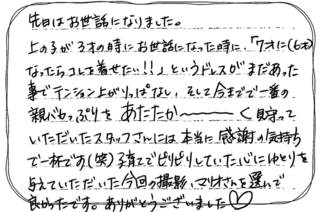 先日はお世話になりました。
上の子が3才の時にお世話になった時に、「7才に(6才)
なったらコレを着せたい!!」というドレスがまだあった
事でテンション上がりっぱない、そして今までで一番の
親バカっぷりを あたたか〜〜〜く見守って
いただいたスタッフさんには本当に 感謝の気持ち
で一杯です(笑)子育てでピリピリしていた心にゆとりを
与えていただいた今回の撮影、マリオさんを選んで
良かったです。ありがとうございました♡